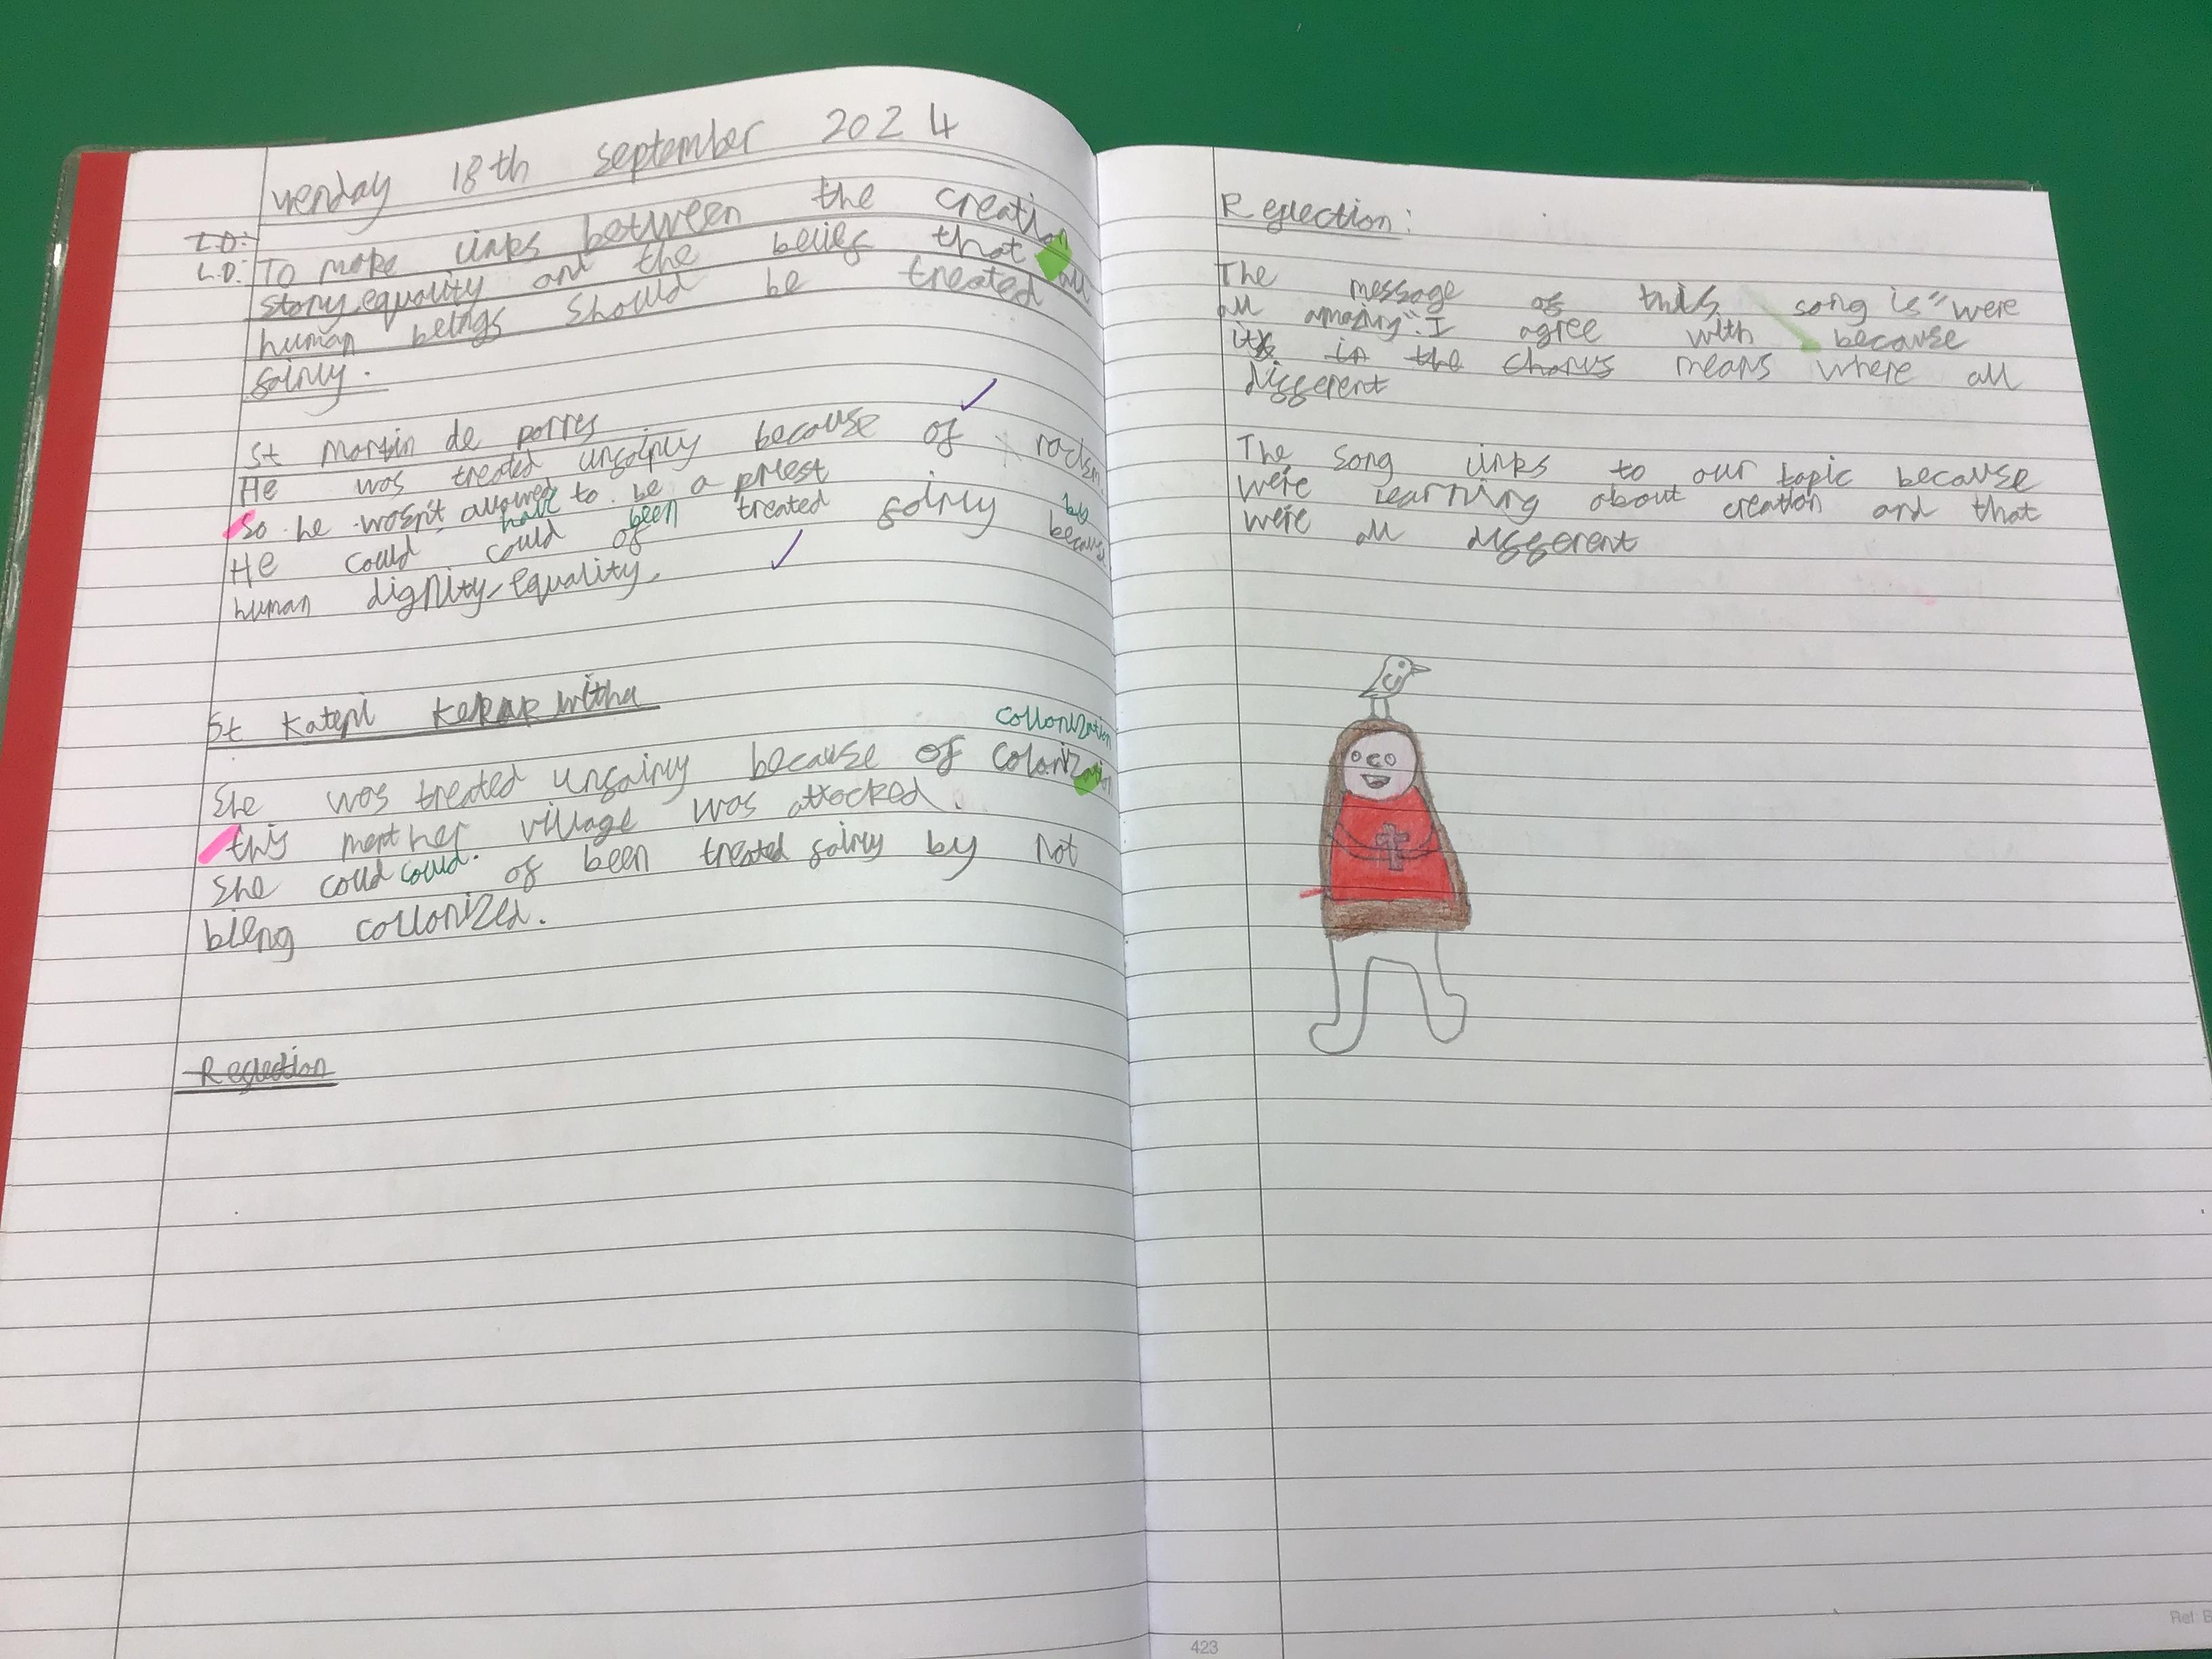 18th september 2024
L.O:
L.O: To make links between the creation
story, equality and the belief that all
human beings should be treated
fairly.
St Martin de porres
He was treated unfairly because of racism.
so he wasn't allowed to be a priest
have been by
He could could of treated fairly because
human dignity, equality.
St Kateri
collonization
She was treated unfairly because of
this ment her village was attocked.
She could could of been treated fairly by not
bieng collonized.
Reflection
Reflection:
The message of this song is "were
all amazing". I agree with because
its in the chorus means where all
different
The song links to our topic because
were learning about creation and that
were all different
423
Ref